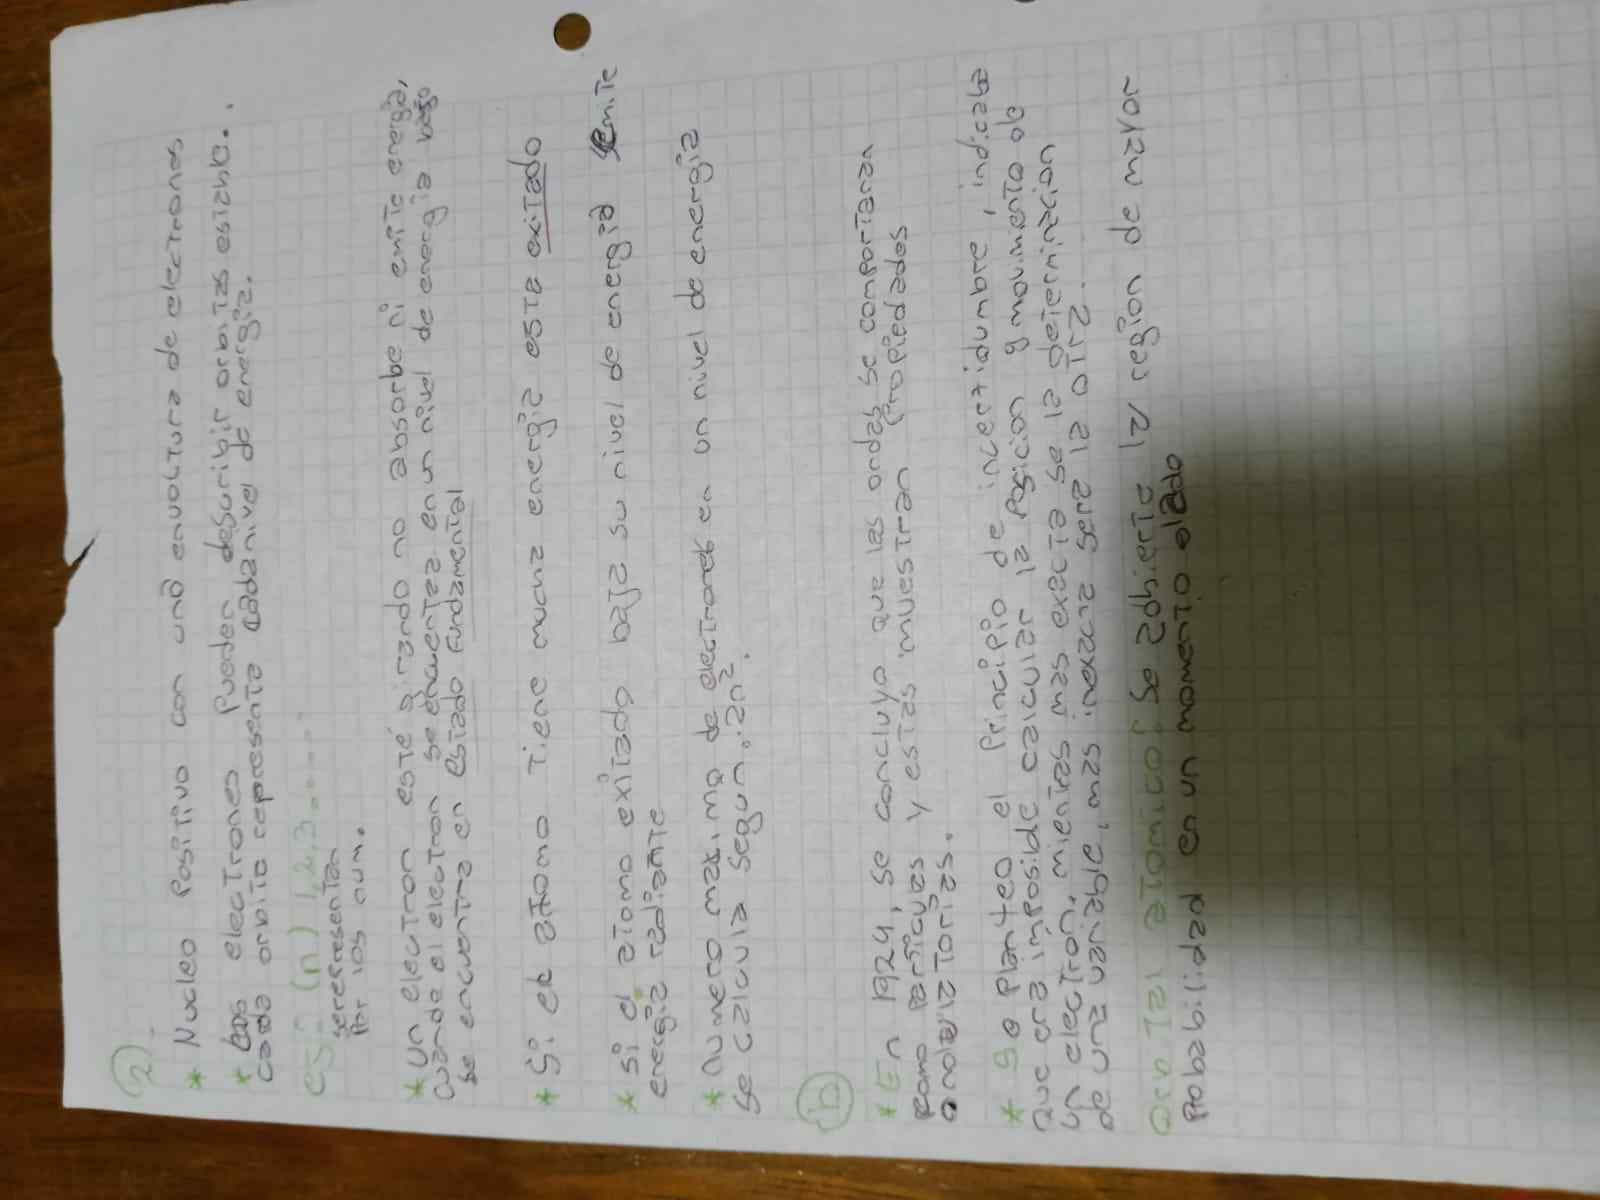 a)
* Nucleo Positivo con una envoltura de electrones
* Los electrones Pueden describir orbitas estable.
cada orbita representa cada nivel de energia.
es: (n) 1,2,3.....
se representan
Por los num.
* un electron esté girando no absorbe ni emite energia,
cuando el electron se encuentra en un nivel de energia bajo
se encuentra en estado fundamental
* Si el atomo tiene mucha energia esta exitado
* si el atomo exitado baja su nivel de energia emite
energia radiante
* numero maximo de electrones en un nivel de energia
se calcula segun: 2n².
b)
* En 1924, se concluyo que las ondas se comportaran
como particulas y estas muestran Propiedades
ondulatorias.
* Se planteo el Principio de incertidumbre, indicaba
que era imposible calcular la posicion y movimento de
un electron, mientras mas exacta sea la determinacion
de una variable, mas inexacta sera la otra.
orbital atomico: es aquella region de mayor
Probabilidad en un momento dado